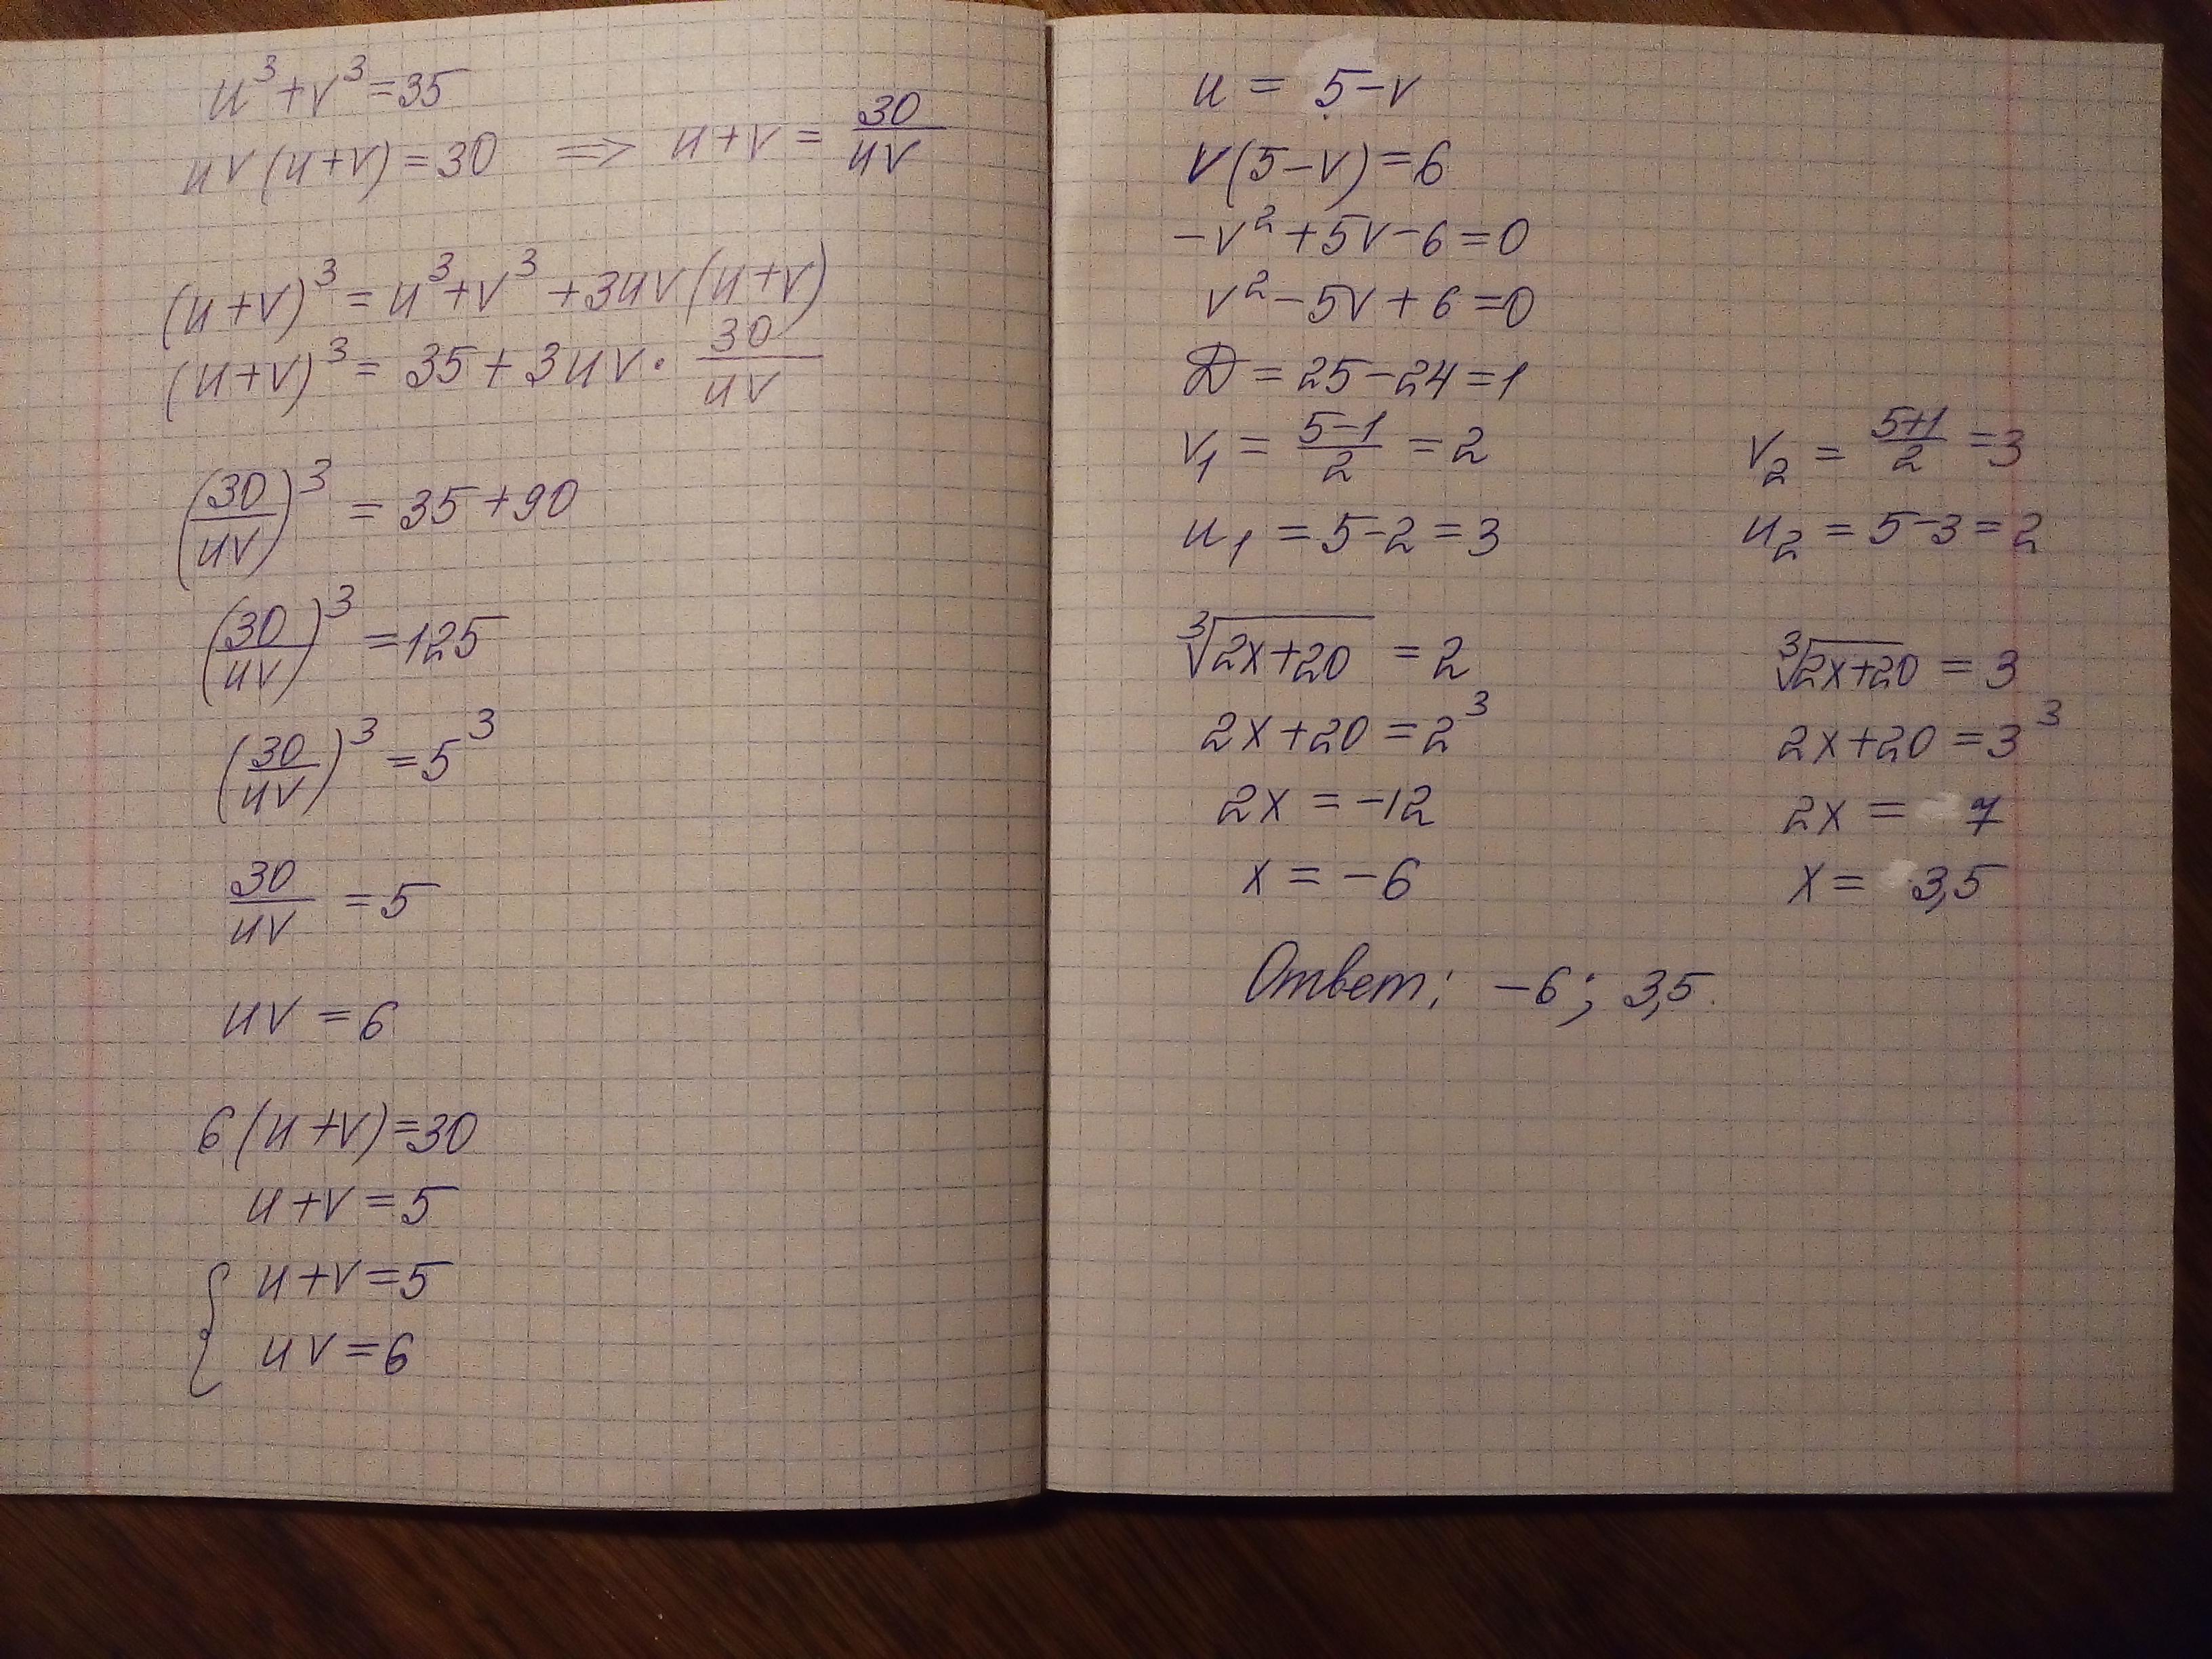 u³+v³=35
uv(u+v)=30 => u+v = 30/uv
(u+v)³ = u³+v³+3uv(u+v)
(u+v)³ = 35+3uv · 30/uv
(30/uv)³ = 35+90
(30/uv)³ = 125
(30/uv)³ = 5³
30/uv = 5
uv = 6
6(u+v)=30
u+v=5
{ u+v=5
uv=6
u = 5-v
v(5-v)=6
-v²+5v-6=0
v²-5v+6=0
D=25-24=1
v₁ = (5-1)/2 = 2 v₂ = (5+1)/2 = 3
u₁ = 5-2 = 3 u₂ = 5-3 = 2
∛(2x+20) = 2 ∛(2x+20) = 3
2x+20 = 2³ 2x+20 = 3³
2x = -12 2x = 7
x = -6 x = 3,5
Ответ: -6; 3,5.